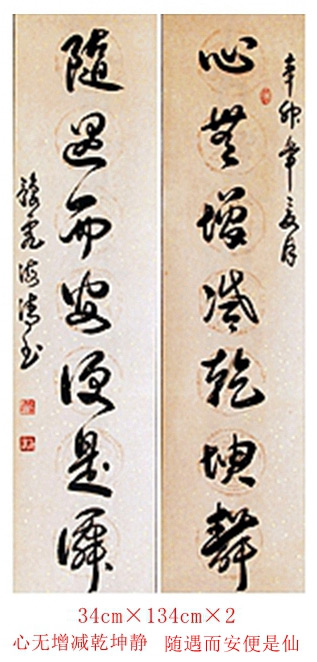 辛卯年夏月
心無增減乾坤靜
隨遇而安便是僊
34cm×134cm×2
心无增减乾坤静 随遇而安便是仙